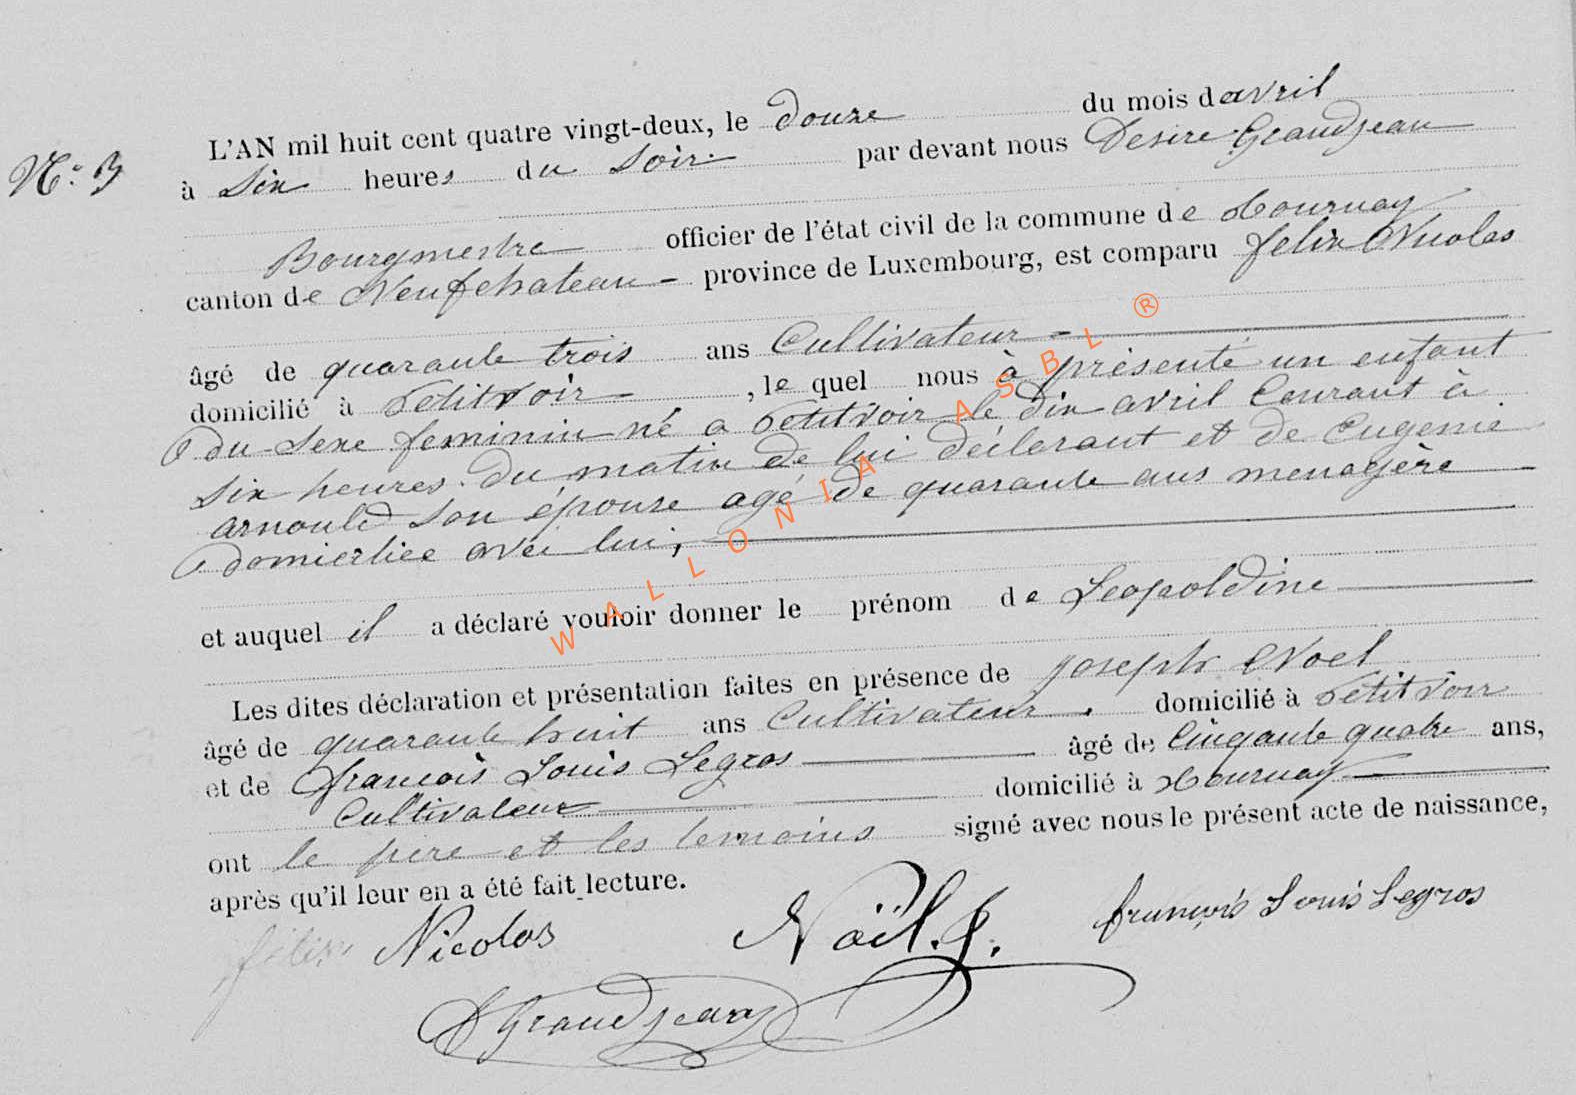 L'AN mil huit cent quatre vingt-deux, le douze du mois d avril
N° 13
à six heures du soir par devant nous Desire Grandjean
Bourgmestre officier de l'état civil de la commune de Tournay
canton de Neufchateau province de Luxembourg, est comparu felix Nicolas
âgé de quarante trois ans Cultivateur
domicilié à Petitvoir, le quel nous à présenté un enfant
du sexe feminin né a Petitvoir le dix avril Courant à
six heures du matin de lui déclarant et de Eugenie
arnould son épouse agé de quarante ans menagère
domiciliee avec lui,
et auquel il a déclaré vouloir donner le prénom de Leopoldine
Les dites déclaration et présentation faites en présence de joseph Noel
âgé de quarante huit ans Cultivateur. domicilié à Petitvoir
et de françois Louis Legros âgé de Cinqante quatre ans,
Cultivateur domicilié à Tournay
ont le pere et les temoins signé avec nous le présent acte de naissance,
après qu'il leur en a été fait lecture.
félix Nicolas Noël. J. françois Louis Legros
D Grandjean
WALLONIA ASBL ®